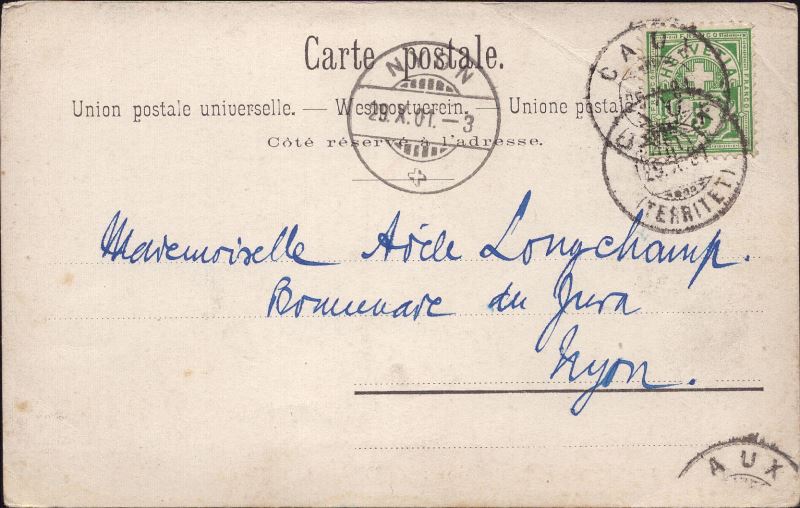 Carte postale.
Union postale universelle. — Weltpostverein. — Unione postale
Côté réservé à l'adresse.
NYON
29.X.01.–3
CAUX
HELVETIA
FRANCO
5
29.X.01
(TERRITET)
Mademoiselle Adèle Longchamp.
Promenade du Jura
Nyon.
AUX